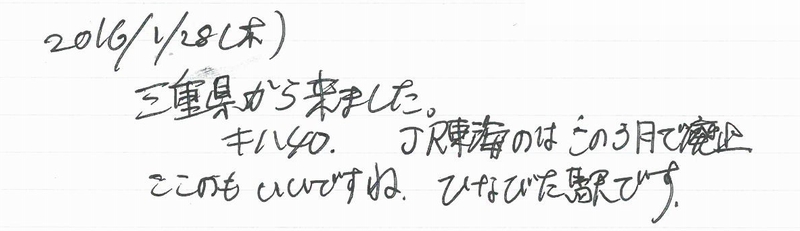 2016/1/28(木)
三重県から来ました。
キハ40. JR東海のはこの3月で廃止
ここのもいいですね. ひなびた駅です.